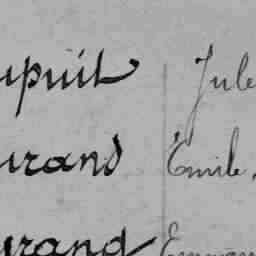 upuit Jule
urand Émile,
urand Emman